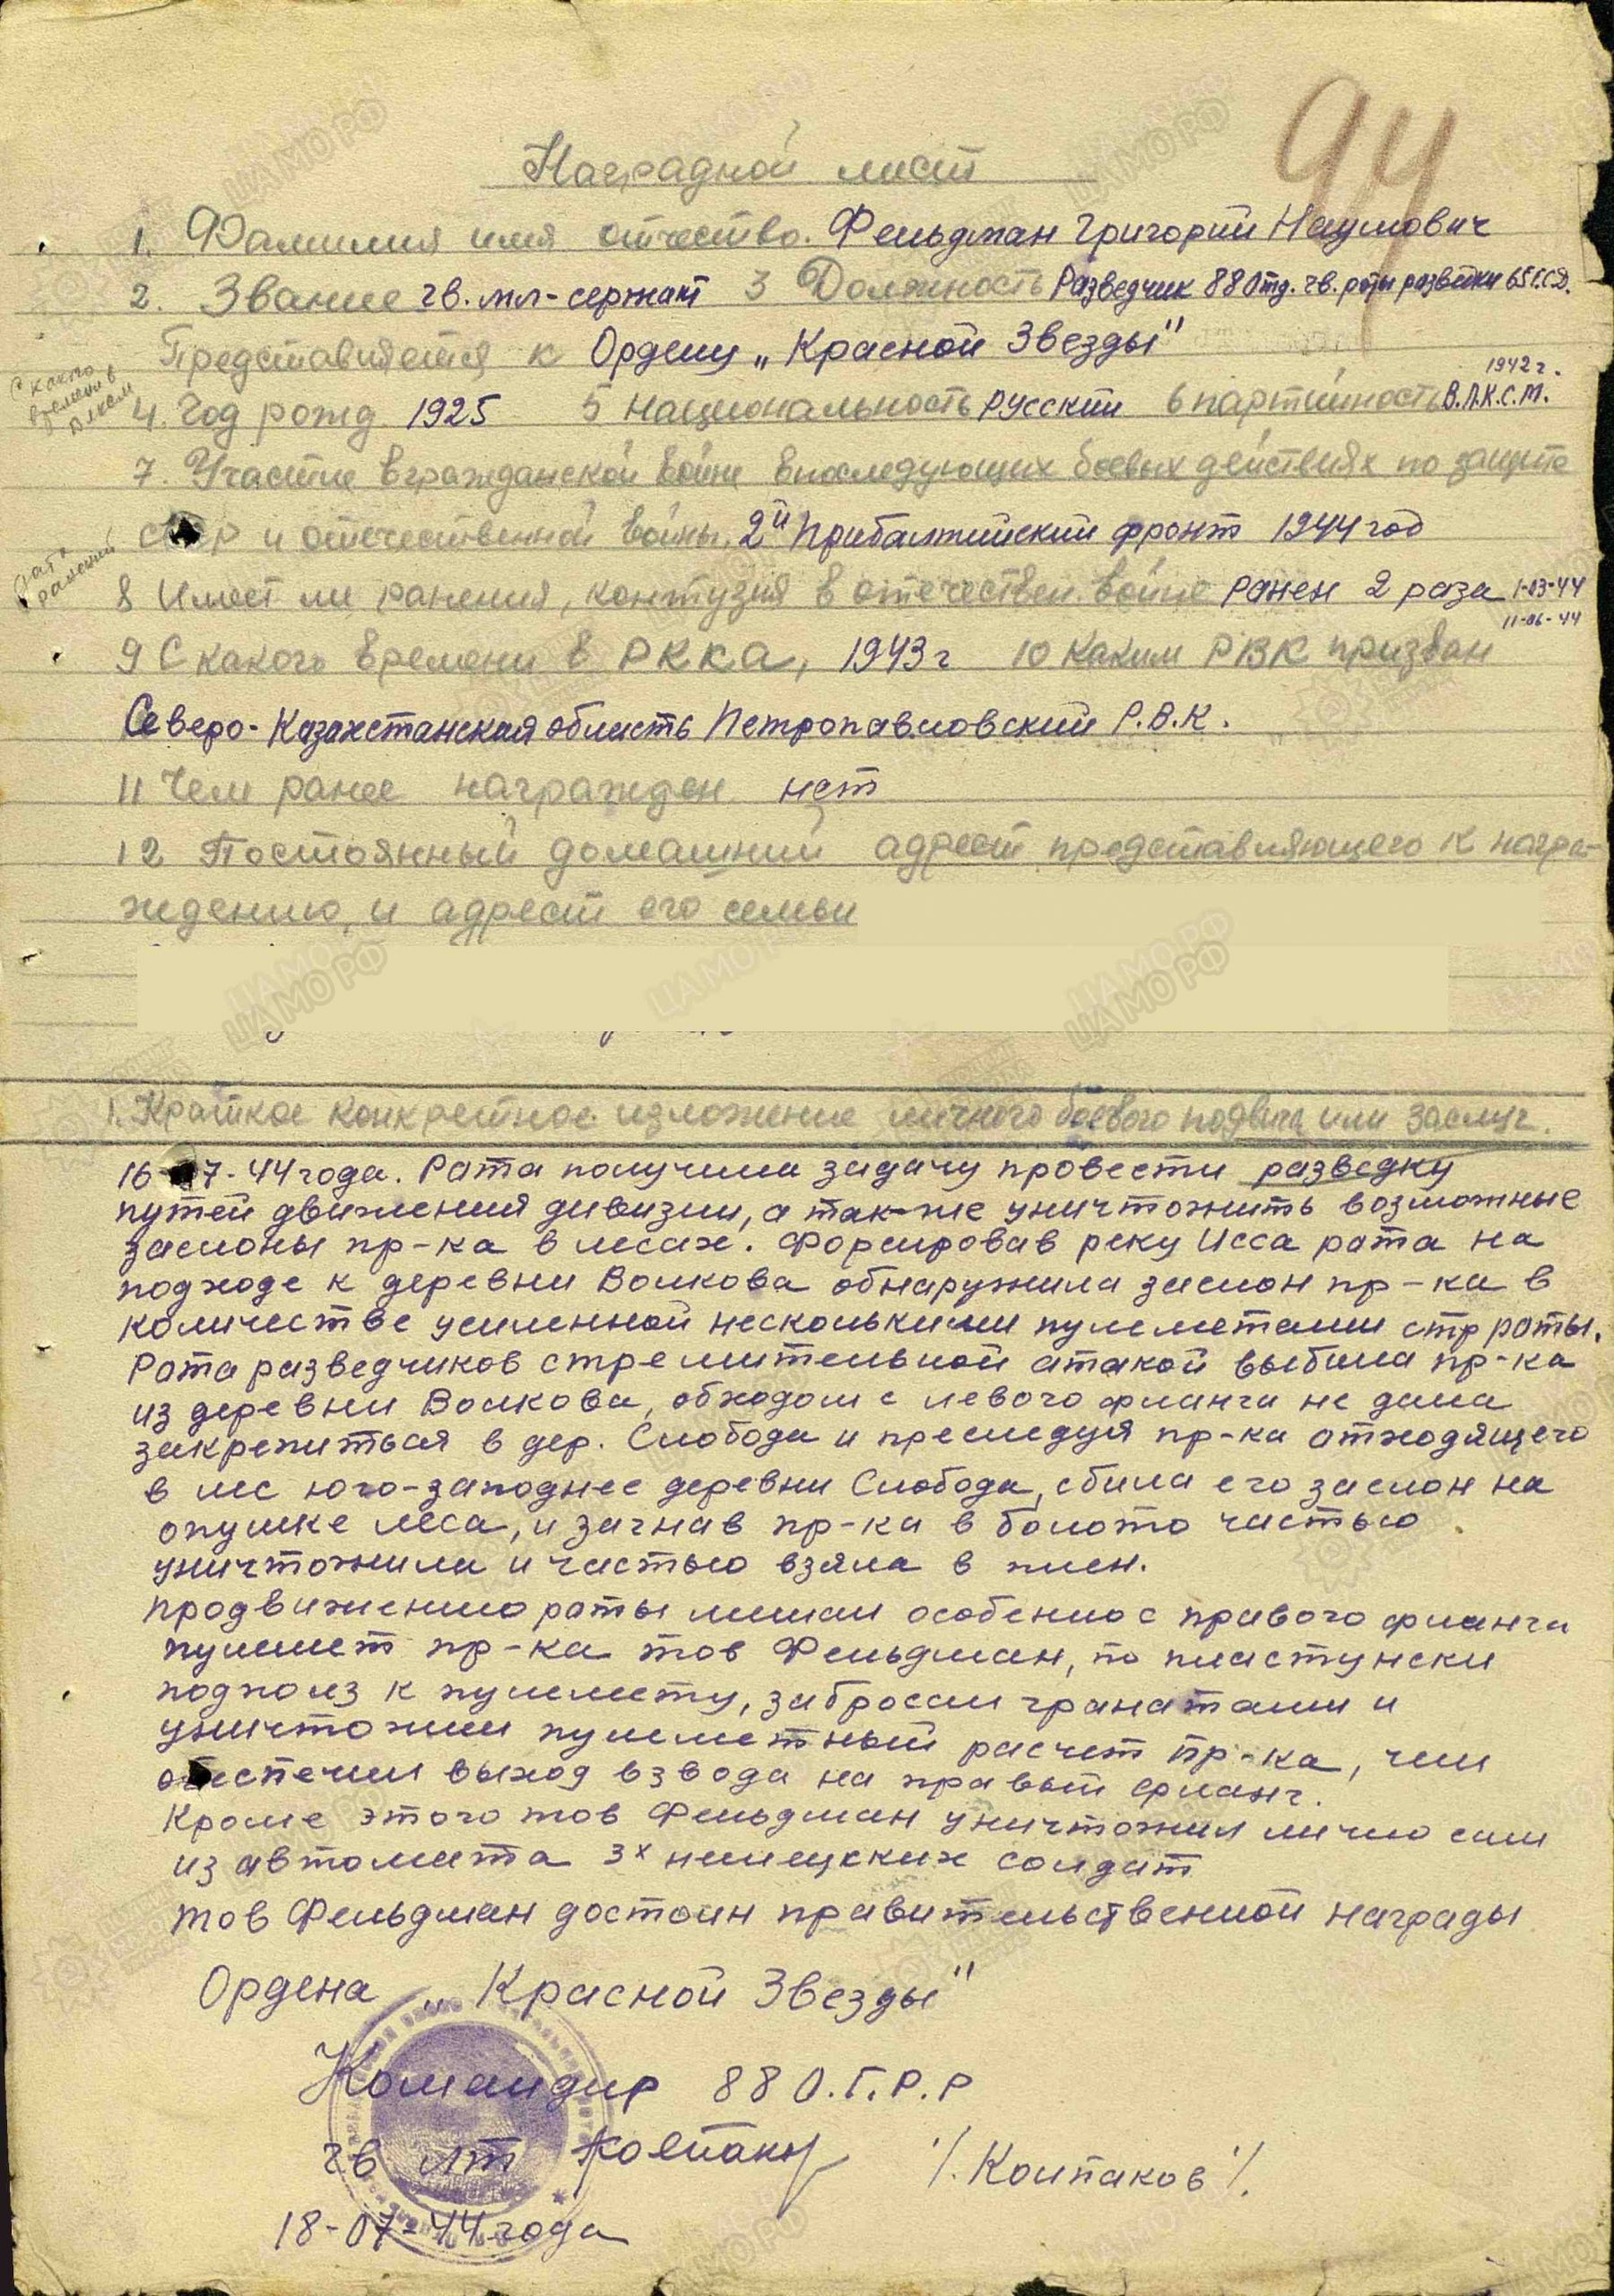 94
Наградной лист
1. Фамилия имя отчество. Фельдман Григорий Наумович
2. Звание гв. мл-сержант 3 Должность Разведчик 88 Отд. гв. роты разветки 65 г.С.Д.
Представляется к Ордену „Красной Звезды"
С какого времени в влксм
1942 г.
4. Год рожд. 1925 5 Национальность русский 6 партийность В.Л.К.С.М.
7. Участие в гражданской войне в последующих боевых действиях по защите
ссср и отечественной войны. 2й Прибалтийский фронт 1944 год
дата ранений
8 Имеет ли ранения, контузия в отечествен. войне Ранен 2 раза 1-03-44
11-06-44
9 С какого времени в РККА, 1943 г 10 Каким РВК призван
Северо-Казахстанская область Петропавловский Р.В.К.
11 Чем ранее награжден нет
12 Постоянный домашний адрест представляющего к награ-
ждению, и адрест его семьи
1. Краткое конкретное изложение личного боевого подвига или заслуг.
16-07-44 года. Рота получила задачу провести разведку
путей движения дивизии, а так-же уничтожить возможные
заслоны пр-ка в лесах. Форсировав реку Исса рота на
подходе к деревни Волкова обнаружила заслон пр-ка в
количестве усиленной несколькими пулеметами стр роты.
Рота разведчиков стремительной атакой выбила пр-ка
из деревни Волкова, обходом с левого фланга не дала
закрепиться в дер. Слобода и преследуя пр-ка отходящего
в лес юго-западнее деревни Слобода, сбила его заслон на
опушке леса, и загнав пр-ка в болото частью
уничтожила и частью взяла в плен.
Продвижению роты мешал особенно с правого фланга
пулемет пр-ка тов Фельдман, по пластунски
подполз к пулемету, забросал гранатами и
уничтожил пулеметный расчет пр-ка, чем
обеспечил выход взвода на правый фланг.
Кроме этого тов Фельдман уничтожил лично сам
из автомата 3х немецких солдат
тов Фельдман достоин правительственной награды
Ордена „Красной Звезды"
Командир 88 О.Г.Р.Р
гв лт Колпаков /. Колпаков /.
18-07-44 года